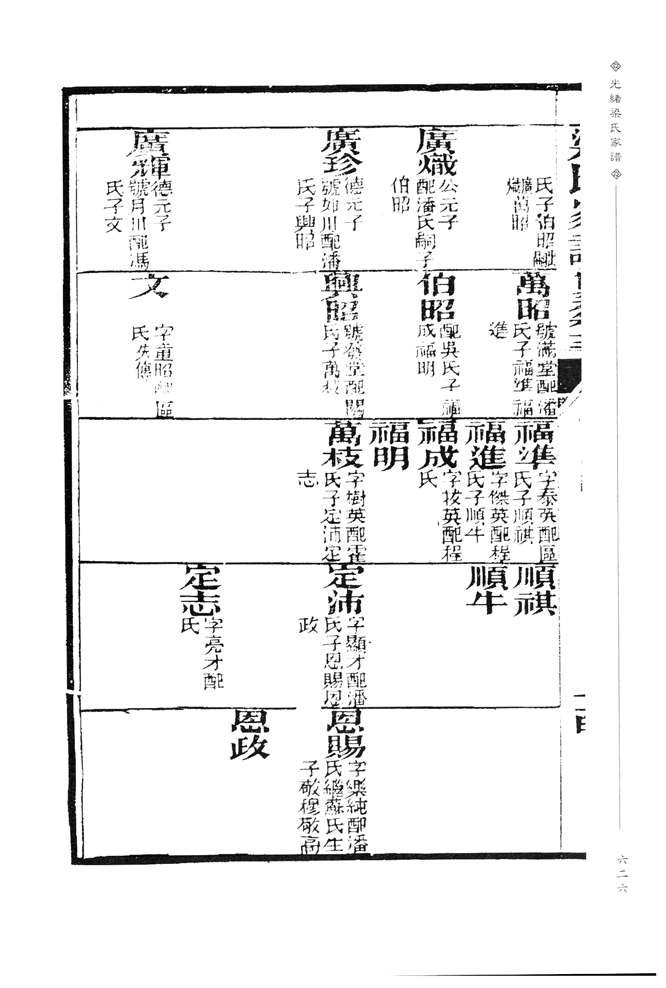 光緒梁氏家譜
六二六
氏子伯昭嗣
萬昭
廣熾
公元子
配潘氏嗣子
伯昭
廣珍
德元子
號如川配潘
氏子興昭
廣輝
德元子
號月川配馮
氏子文
萬昭
號滿堂配潘
氏子福準福
進
伯昭
配吳氏子福
成福明
興昭
號發堂配關
氏子萬枝
文
字童昭配區
氏失傳
福準
字泰英配區
氏子順祺
福進
字傑英配程
氏子順牛
福成
字枝英配程
氏
福明
萬枝
字樹英配霍
氏子定沛定
志
順祺
順牛
定沛
字顯才配潘
氏子恩賜恩
政
定志
字亮才配
氏
恩賜
字樂純配潘
氏繼蘇氏生
子敬穆敬高
恩政